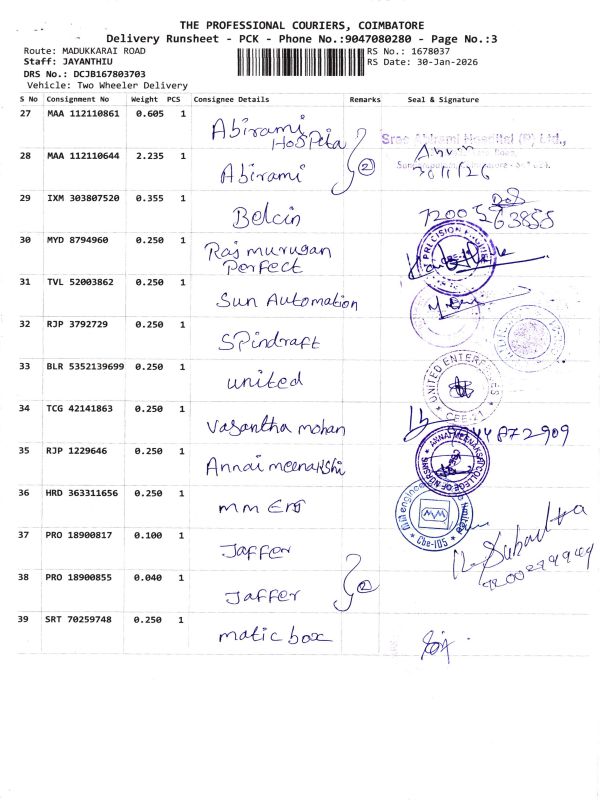 THE PROFESSIONAL COURIERS, COIMBATORE
Delivery Runsheet - PCK - Phone No.:9047080280 - Page No.:3
Route: MADUKKARAI ROAD RS No.: 1678037
Staff: JAYANTHIU RS Date: 30-Jan-2026
DRS No.: DCJB167803703
Vehicle: Two Wheeler Delivery
S No Consignment No Weight PCS Consignee Details Remarks Seal & Signature
27 MAA 112110861 0.605 1 Abirami Hospital
28 MAA 112110644 2.235 1 Abirami 2
29 IXM 303807520 0.355 1 Belcin 7200563855
30 MYD 8794960 0.250 1 Raj murugan
Perfect
31 TVL 52003862 0.250 1 Sun Automation
32 RJP 3792729 0.250 1 Spindraft
33 BLR 5352139699 0.250 1 united UNITED ENTERPRISES CBE-21
34 TCG 42141863 0.250 1 Vasantha mohan
35 RJP 1229646 0.250 1 Annai meenakshi ANNAI MEENAKSHI COLLEGE OF NURSING
36 HRD 363311656 0.250 1 mm Eng
37 PRO 18900817 0.100 1 Jaffer
38 PRO 18900855 0.040 1 Jaffer 2
39 SRT 70259748 0.250 1 matic box